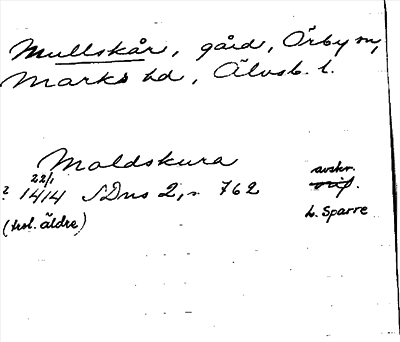 Mullskår, gård, Örby sn,
Marks hd, Älvsb. l.
Moldskura
22/1
? 1414 SDns 2, n 762
avskr.
orig.
(trol. äldre)
L. Sparre